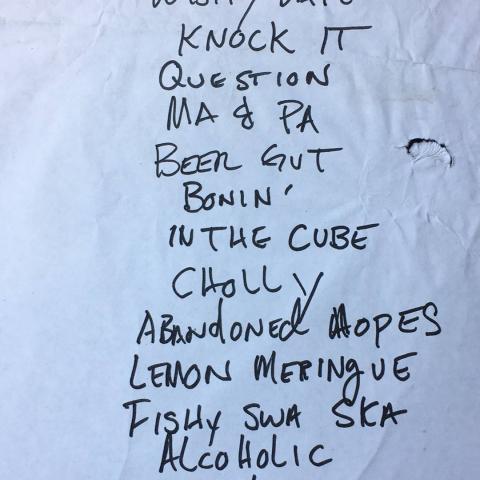 KNOCK IT
QUESTION
MA & PA
BEER GUT
BONIN'
IN THE CUBE
CHOLLY
ABANDONED HOPES
LEMON MERINGUE
FISHY SWA SKA
ALCOHOLIC